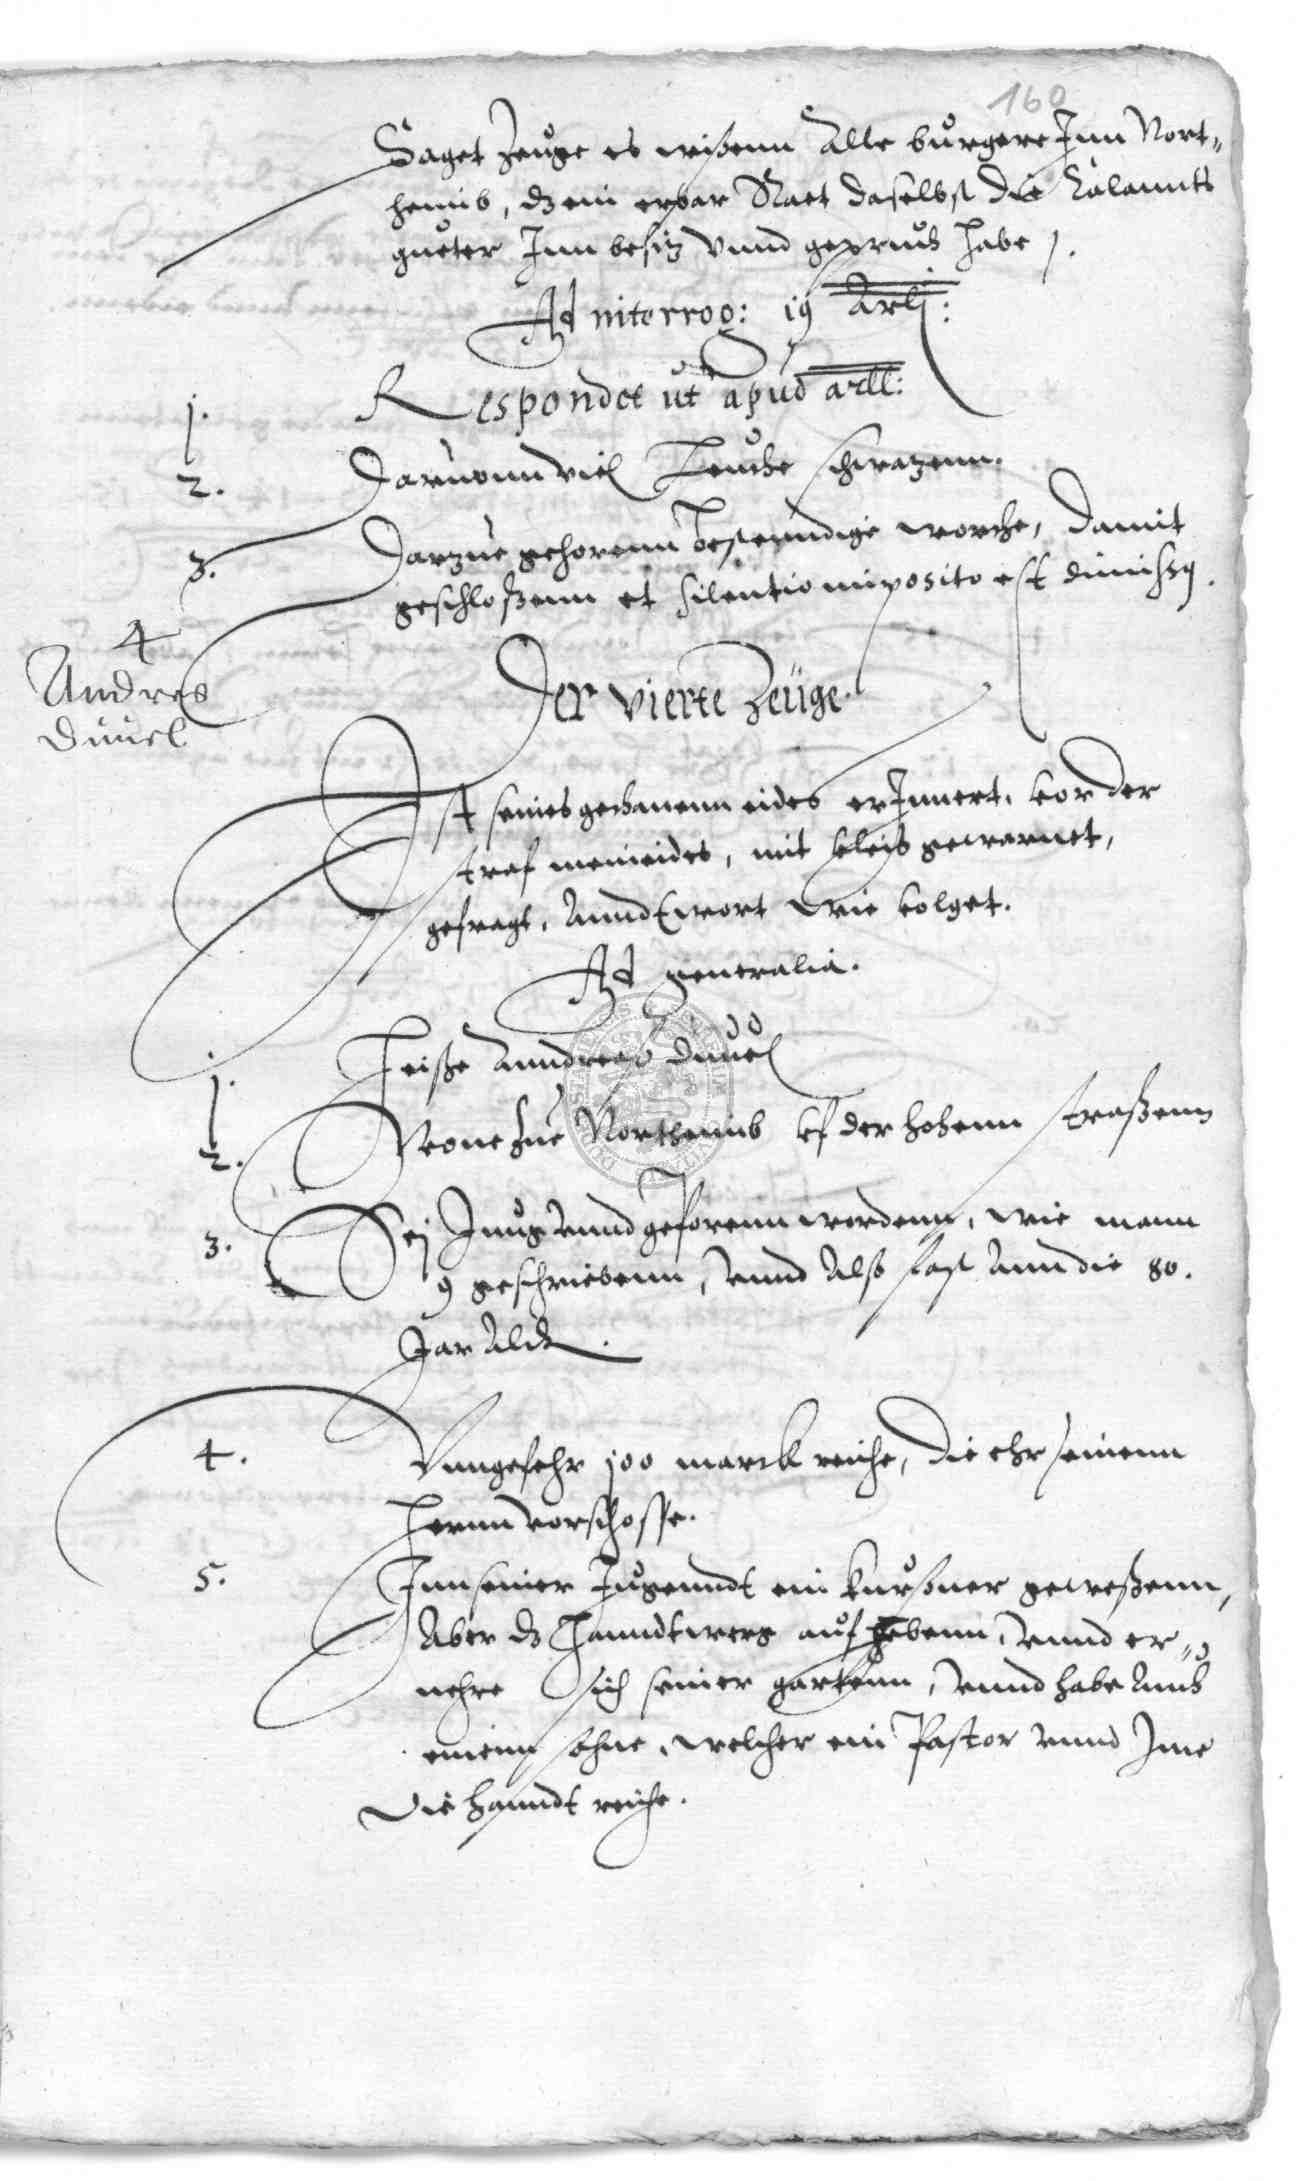 160
Saget Zeuge es wißenn Alle burgere Inn Nort¬
heimb, dz ein erbar Raet daselbst die Calannts
gueter Inn besitz vnnd gepruch habe.
Ad interrog: 19 Artlj:
1. Respondet ut apud artll:
2. Daruonn viel Leuthe schwatzenn.
3. Darzue gehorenn bestenndige worthe, damit
geschloßenn et silentio imposito est dimissq.
4
Andres
Düuel
Der vierte Zeüge.
Ist seines gethanenn eides erInnert, vor der
straf meineides, mit vleis gewarnet,
gefragt, Anndtwort wie volget.
Ad generalia.
1. Heiße Anndreas Duuel
2. Wone Zue Northeimb vf der hohenn straßenn
3. Sej Jung vnnd geborenn wordenn, wie mann
9 geschriebenn, vnnd Also fast Ann die 80.
Jar Aldt.
4. Vnngefehr 100 marck reiche, die ehr seinenn
Herrnn vorschosse.
5. Inn seiner Jugenndt ein kurßner geweßenn,
Aber dz Hanndtwerg auf gebenn, vnnd er¬
nehre sich seiner gartenn, vnnd habe Annch
einenn sohne, welcher ein Pastor vnnd Ime
die hanndt reiche.